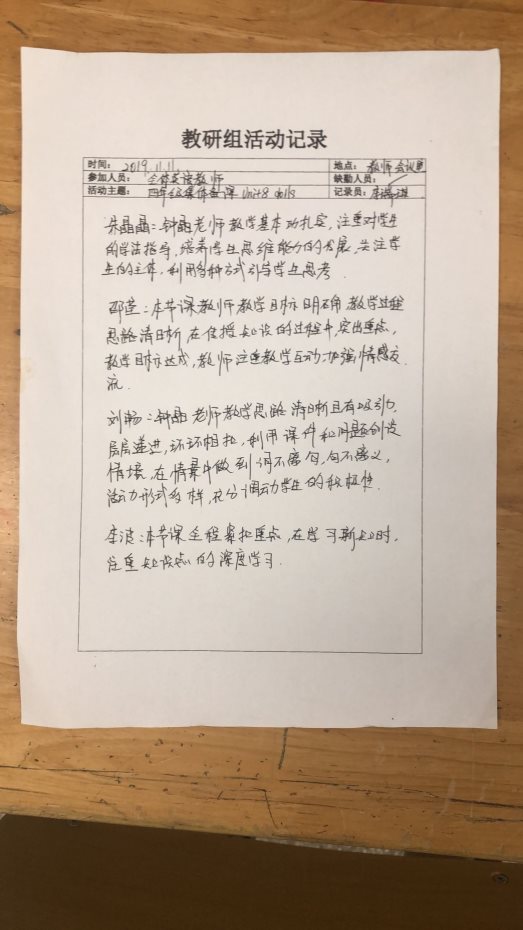 教研组活动记录
时间： 2019.11.11 地点： 教师会议室
参加人员： 全体英语教师 缺勤人员： /
活动主题： 四年级集体备课 Unit8 dolls 记录员：
朱晶晶：钟晶老师教学基本功扎实，注重对学生
的学法指导，培养学生思维能力的发展，关注学
生的主体，利用多种方式引导学生思考.
邵莹：本节课教师教学目标明确，教学过程
思路清晰，在传授知识的过程中，突出重点，
教学目标达成，教师注重教学互动，加强情感交
流.
刘畅：钟晶老师教学思路清晰且有吸引力，
层层递进，环环相扣，利用课件和问题创设
情境，在情景中做到词不离句，句不离义，
活动形式多样，充分调动学生的积极性.
李波：本节课全程紧扣重点，在学习新知时，
注重知识点的深度学习.